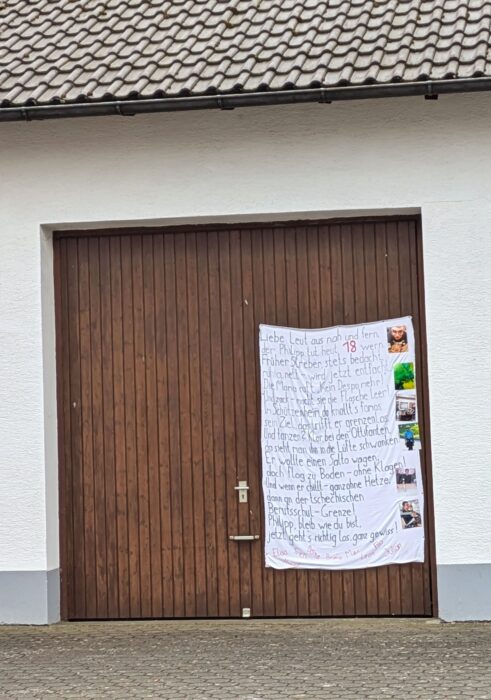 Liebe Leut aus nah und fern
der Philipp tut heut 18 wern
Früher Streber stets bedacht
ruhig, nett - wird jetzt entfacht
Die Mama ruft: Kein Despo mehr
Und zack - macht sie die Flasche leer
In Schützenheim da knallt's famos
sein Ziel, das trifft er grenzenlos
Und tanzen? Klar bei den Ottifanten
da sieht man ihn in die Lüfte schwanken
Er wollte einen Salto wagen,
doch flog zu Boden - ohne Klagen
Und wenn er chillt - ganz ohne Hetze
dann an der tschechischen
Berufsschul-Grenze!
Philipp, bleib wie du bist,
jetzt geht's richtig los, ganz gewiss!